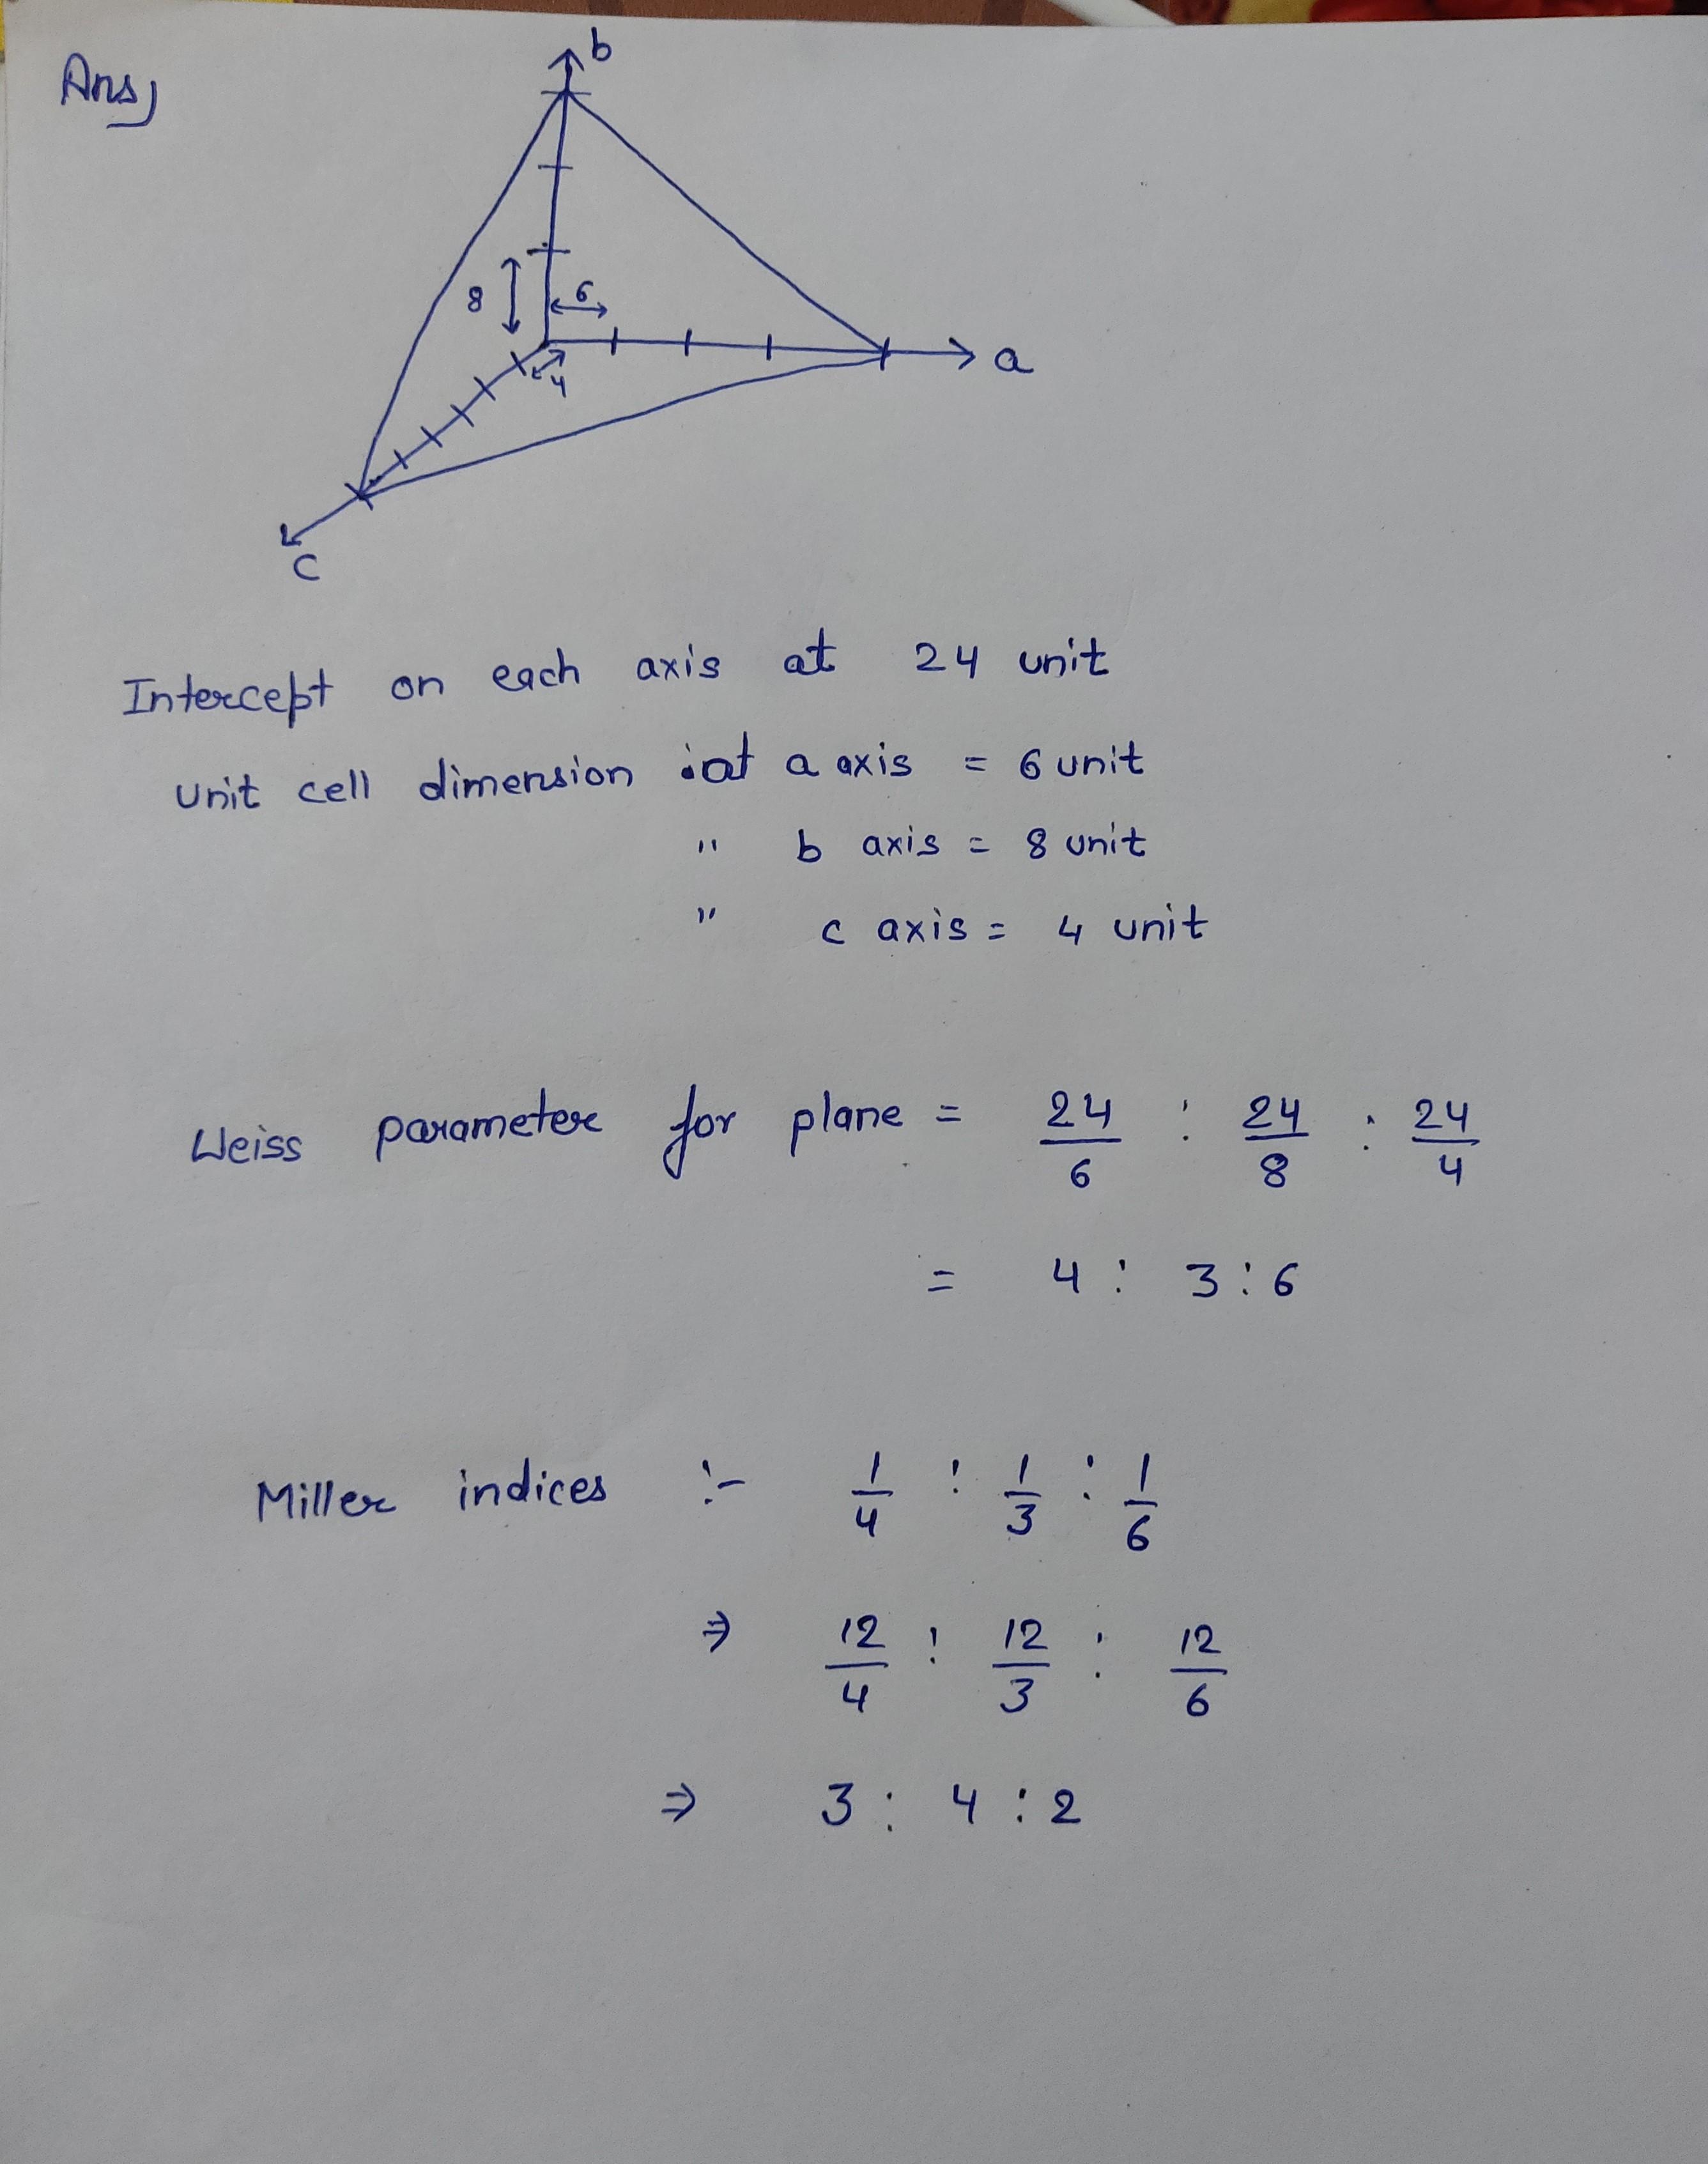 Ans)
b
8
6
4
a
c
Intercept on each axis at 24 unit
unit cell dimension at a axis = 6 unit
" b axis = 8 unit
" c axis = 4 unit
Weiss parameter for plane = 24/6 : 24/8 : 24/4
= 4 : 3 : 6
Miller indices :- 1/4 : 1/3 : 1/6
⇒ 12/4 : 12/3 : 12/6
⇒ 3 : 4 : 2